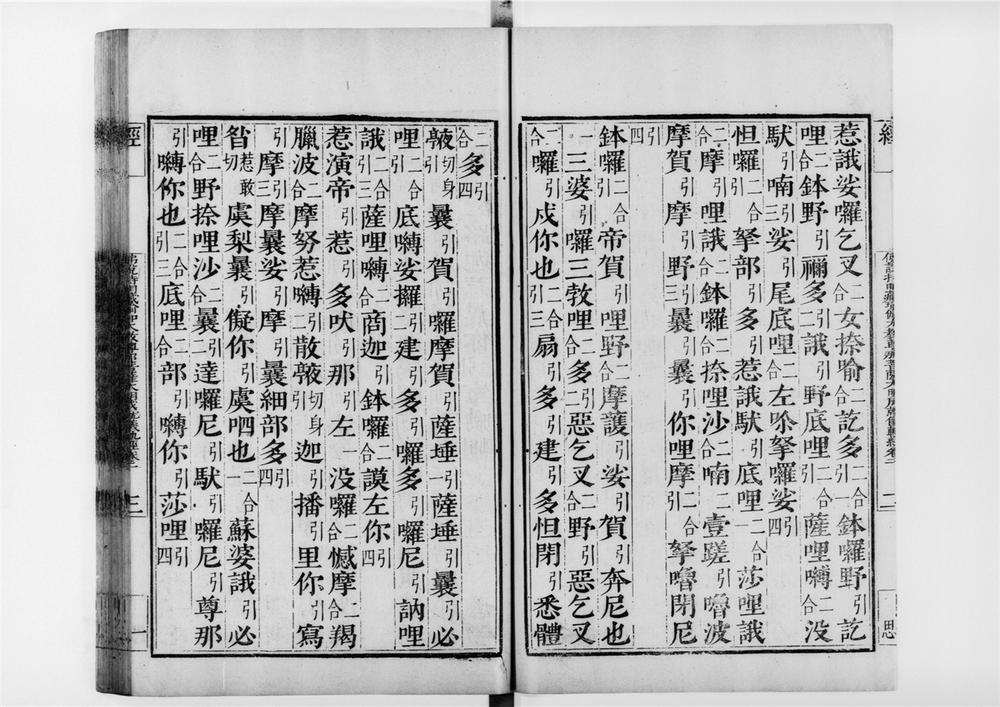 惹誐娑囉乞叉二合女捺喻二合訖多二合引一鉢囉野引訖
哩二合鉢野引禰多二合誐引野底哩二合引薩哩嚩二合没
馱引喃三娑引尾底哩二合左吩拏囉娑引四
怛囉二合引拏部引多引惹誐馱引底哩二合莎哩誐
二合摩引哩誐二合鉢囉二合捺哩沙二合喃二壹蹉引嚕波
摩賀引摩引野三曩引曩引你哩摩二合引拏嚕閉尼
引四
鉢囉二合引帝賀引哩野二合摩護引娑引賀引奔尼也
二合一三婆引囉三敎哩二合多二惡乞叉二合野引惡乞叉
二合囉引戍你也二合引三扇引多引建引多怛閉引悉體
二合多引四
骸切身引曩引賀引囉摩賀引薩埵引一薩埵引曩引必
哩二合引底嚩娑攞引建引多引囉多引囉尼引訥哩
誐二合引三薩哩嚩二合商迦引鉢囉二合謨左你引四
惹演帝引惹引多吠引那引左一没囉二合憾摩二合羯
臘波二合摩努惹嚩二合散骸切身引迦引播引里你引寫
引摩三引摩曩娑引摩引曩細部多引四
昝切惹敢引虞梨曩引儗你引虞呬也二合一蘇婆誐引必
哩二合野捺哩沙二合曩二達囉尼引馱引囉尼引尊那
引嚩你也二合引三底哩二合部引嚩你引莎哩引四
經
三
一
二
思